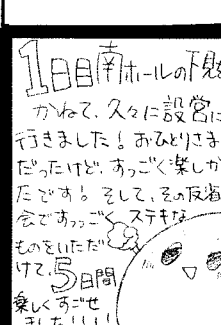 1日目南ホールの下見
かねて、久々に設営に
行きました！おひとりさま
だったけど、すっごく楽しか
たです。そして、その反省
会ですっごくステキな
ものをいただ
けて、5日間
楽しくすごせ
ました!!!!